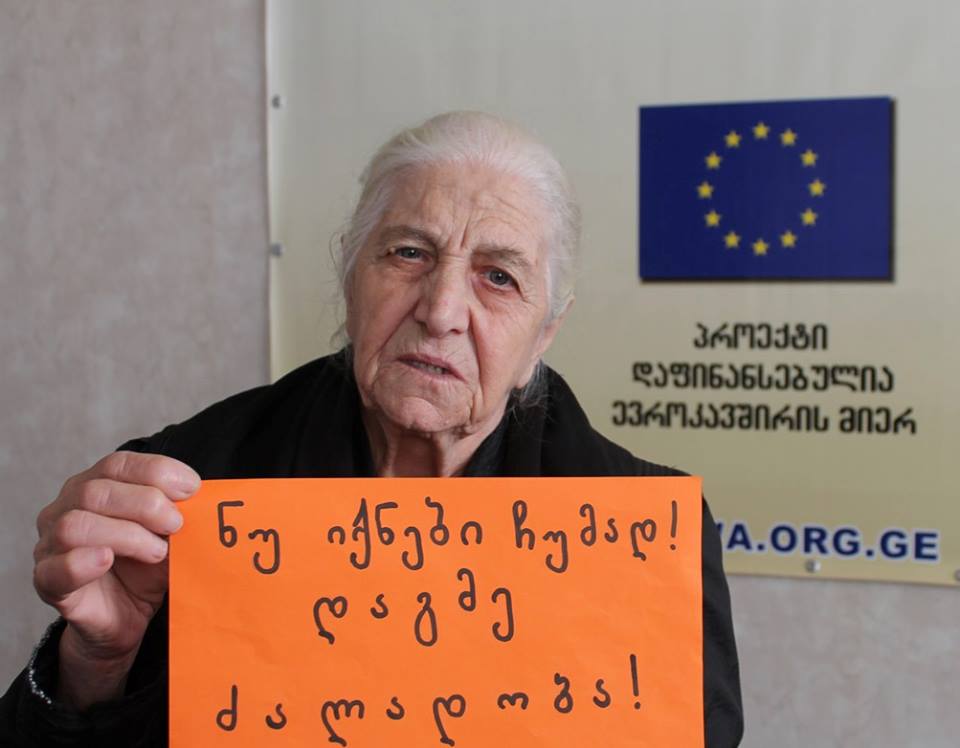 პროექტი
დაფინანსებულია
ევროკავშირის მიერ
VA.ORG.GE
ნუ იქნები ჩუმად!
დაგმე
ძალადობა!